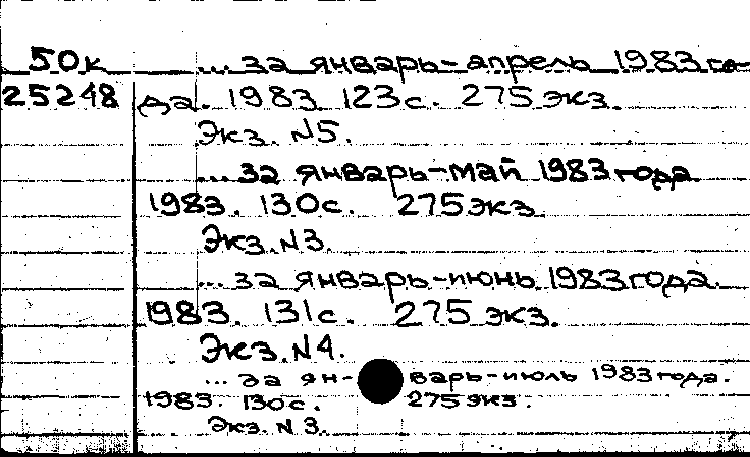 50к ... за январь-апрель 1983 го-
25248 да. 1983 123с. 275 экз.
Экз. N5.
... за январь-май 1983 года
1983. 130с. 275 экз.
Экз. N3.
... за январь-июнь 1983 года.
1983. 131с. 275 экз.
Экз. N4.
... за январь-июль 1983 года.
1983. 130с. 275 экз.
Экз. N 3.